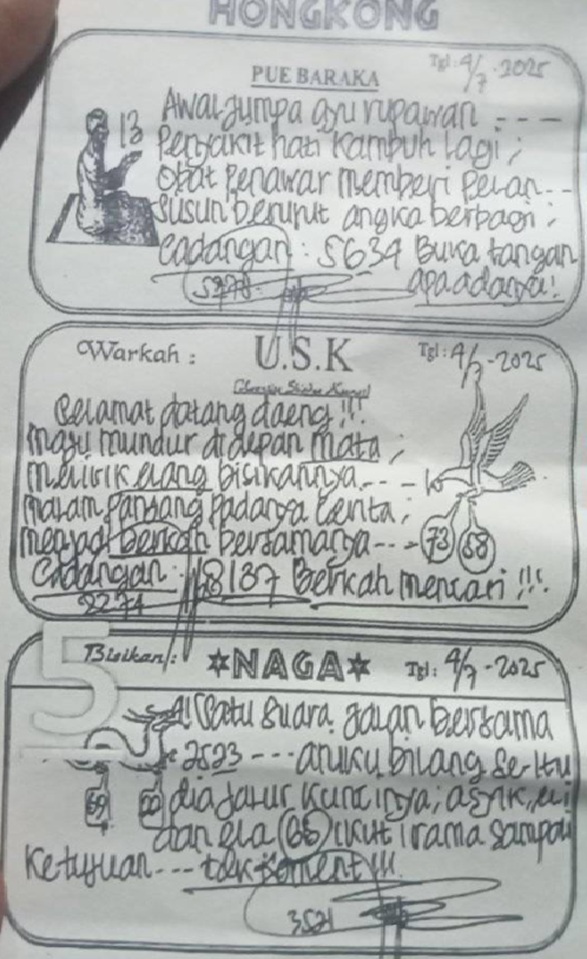 HONGKONG
PUE BARAKA
Tgl: 4/7-2025
13
Awal jumpa ayu rupawan ---
Penyakit hati kambuh lagi;
Obat penawar memberi peran---
Susun berurut angka berbagi;
Cadangan: 5634 Buka tangan
5278 apa adanya!
Warkah: U.S.K Tgl: 4/7-2025
Selamat datang daeng!!!
maju mundur didepan mata;
melirik elang bisikannya---
malam panjang padanya cerita;
menjadi berkah bersamanya---
73 58
Cadangan: 48137 Berkah mencari!!!
2274
5
Bisikan: NAGA Tgl: 4/7-2025
A! Satu suara jalan bersama
2523 --- anuku bilang se-itu
69
dia jalur kuncinya; asyik
dan gla (65) ikut irama sampai
Ketujuan --- tak koment!!!
3521